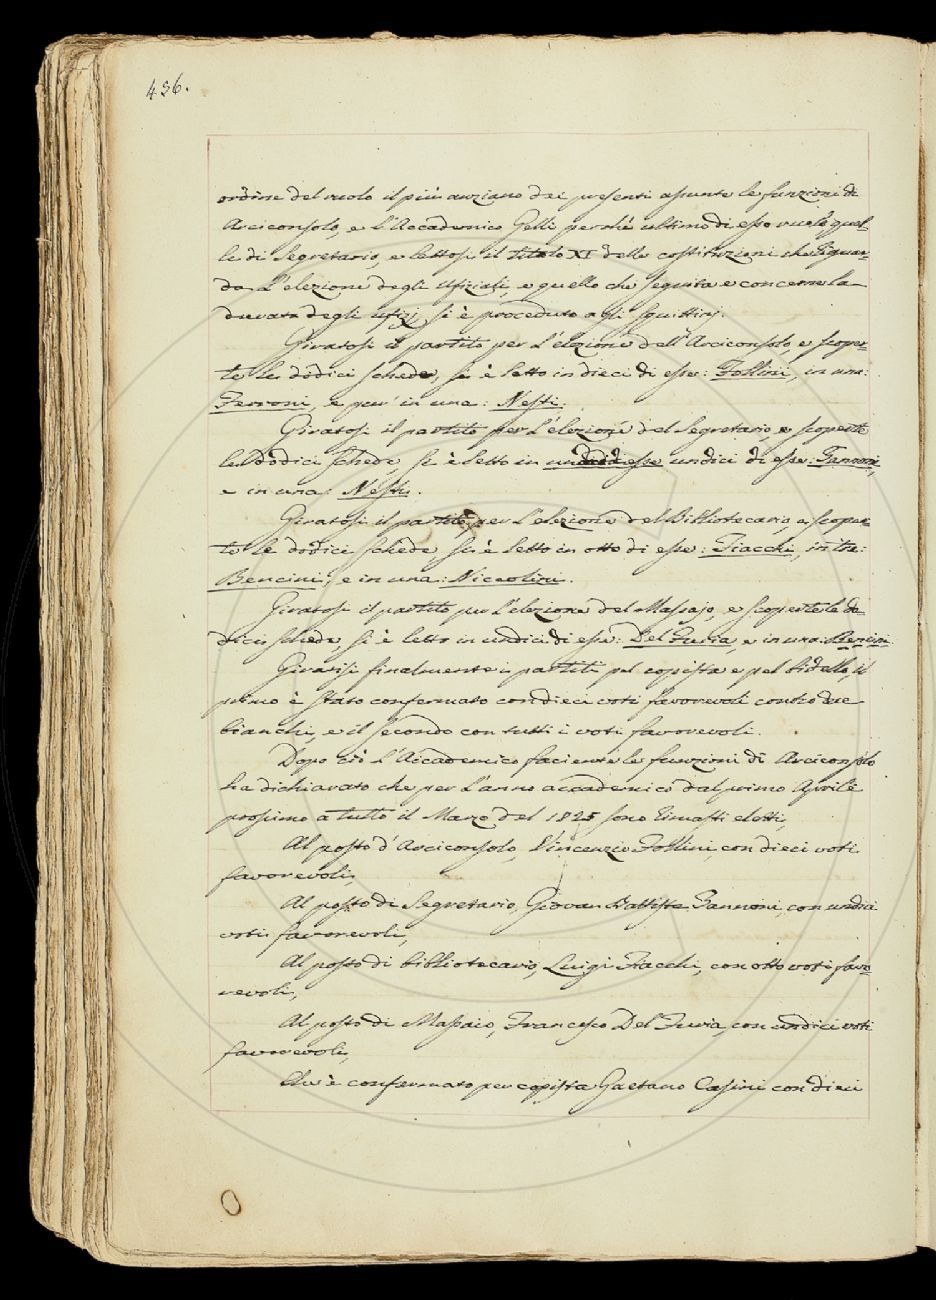 456.
ordine del ruolo il più anziano dei presenti assunte le funzioni di
Arciconsolo, e l'Accademico Gelli perchè ultimo di esso ruolo quel-
le di Segretario, e lettosi il titolo XI delle costituzioni che riguar-
da l'elezione degli Ufiziali, e quello che seguita e concerne la
durata degli ufizj, si è proceduto agli Squittinj.
Giratosi il partito per l'elezione dell'Arciconsolo, e scoper-
te le dodici schede, si è letto in dieci di esse: Follini, in una:
Ferroni, e pur' in una: Nesti.
Giratosi il partito per l'elezione del Segretario, e scoperte
le dodici schede, si è letto in undici di esse: Zannoni,
e in una: Nesti.
Giratosi il partito per l'elezione del Bibliotecario, e scoper-
te le dodici schede si è letto in otto di esse: Fiacchi, in tre:
Bencini, e in una: Niccolini.
Giratosi il partito per l'elezione del Massajo, e scoperte le do-
dici schede, si è letto in undici di esse: Del Furia, e in una: Bencini.
Giratisi finalmente i partiti pel copista e pel bidello, il
primo è stato confermato con dieci voti favorevoli contro due
bianchi, e il secondo con tutti i voti favorevoli.
Dopo ciò l'Accademico faciente le funzioni di Arciconsolo
ha dichiarato che per l'anno accademico dal primo Aprile
prossimo a tutto il Marzo del 1825 sono rimasti eletti,
Al posto d'Arciconsolo, Vincenzio Follini, con dieci voti
favorevoli,
Al posto di Segretario, Giovan Battista Zannoni, con undici
voti favorevoli,
Al posto di bibliotecario, Luigi Fiacchi, con otto voti favo-
revoli,
Al posto di Massaio, Francesco Del Furia, con undici voti
favorevoli,
Che è confermato per copista Gaetano Casini con dieci